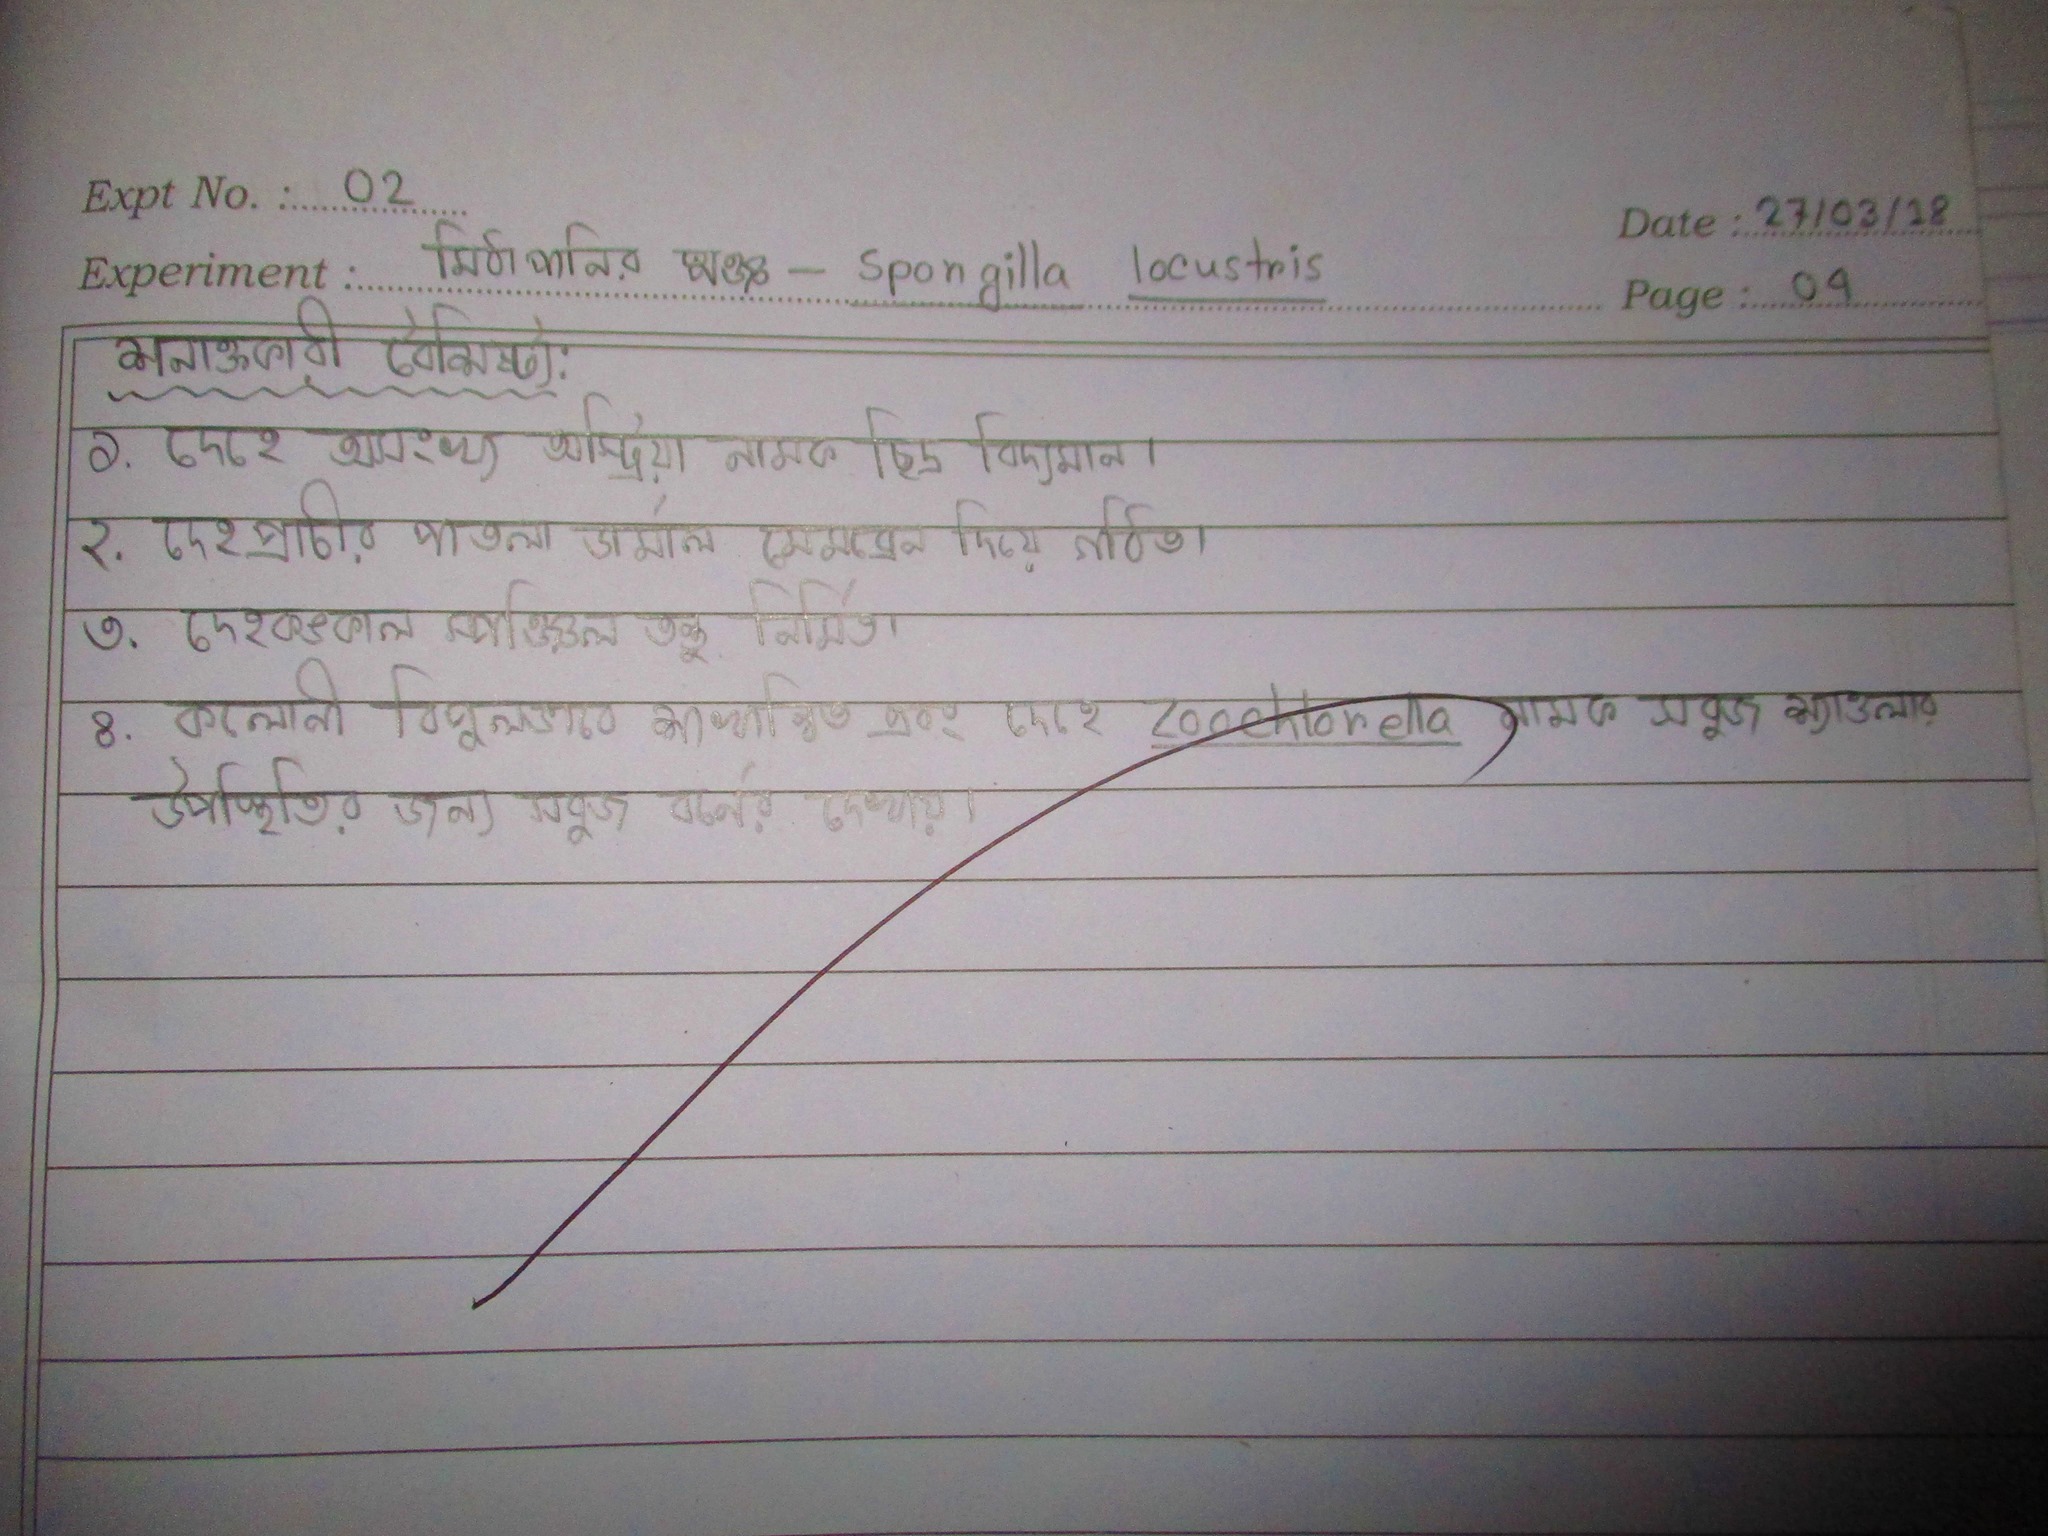 Expt No. : 02
Date : 27/03/18
Experiment : মিঠাপানির স্পঞ্জ – Spongilla locustris
Page : 04
শনাক্তকারী বৈশিষ্ট্য:
১. দেহে অসংখ্য অস্ট্রিয়া নামক ছিদ্র বিদ্যমান।
২. দেহপ্রাচীর পাতলা ডার্মাল মেমব্রেন দিয়ে গঠিত।
৩. দেহকঙ্কাল স্পঞ্জিন তন্তু নির্মিত।
৪. কলোনী বিপুলভাবে শাখান্বিত এবং দেহে zoochlorella নামক সবুজ শ্যাওলার
উপস্থিতির জন্য সবুজ বর্নের দেখায়।